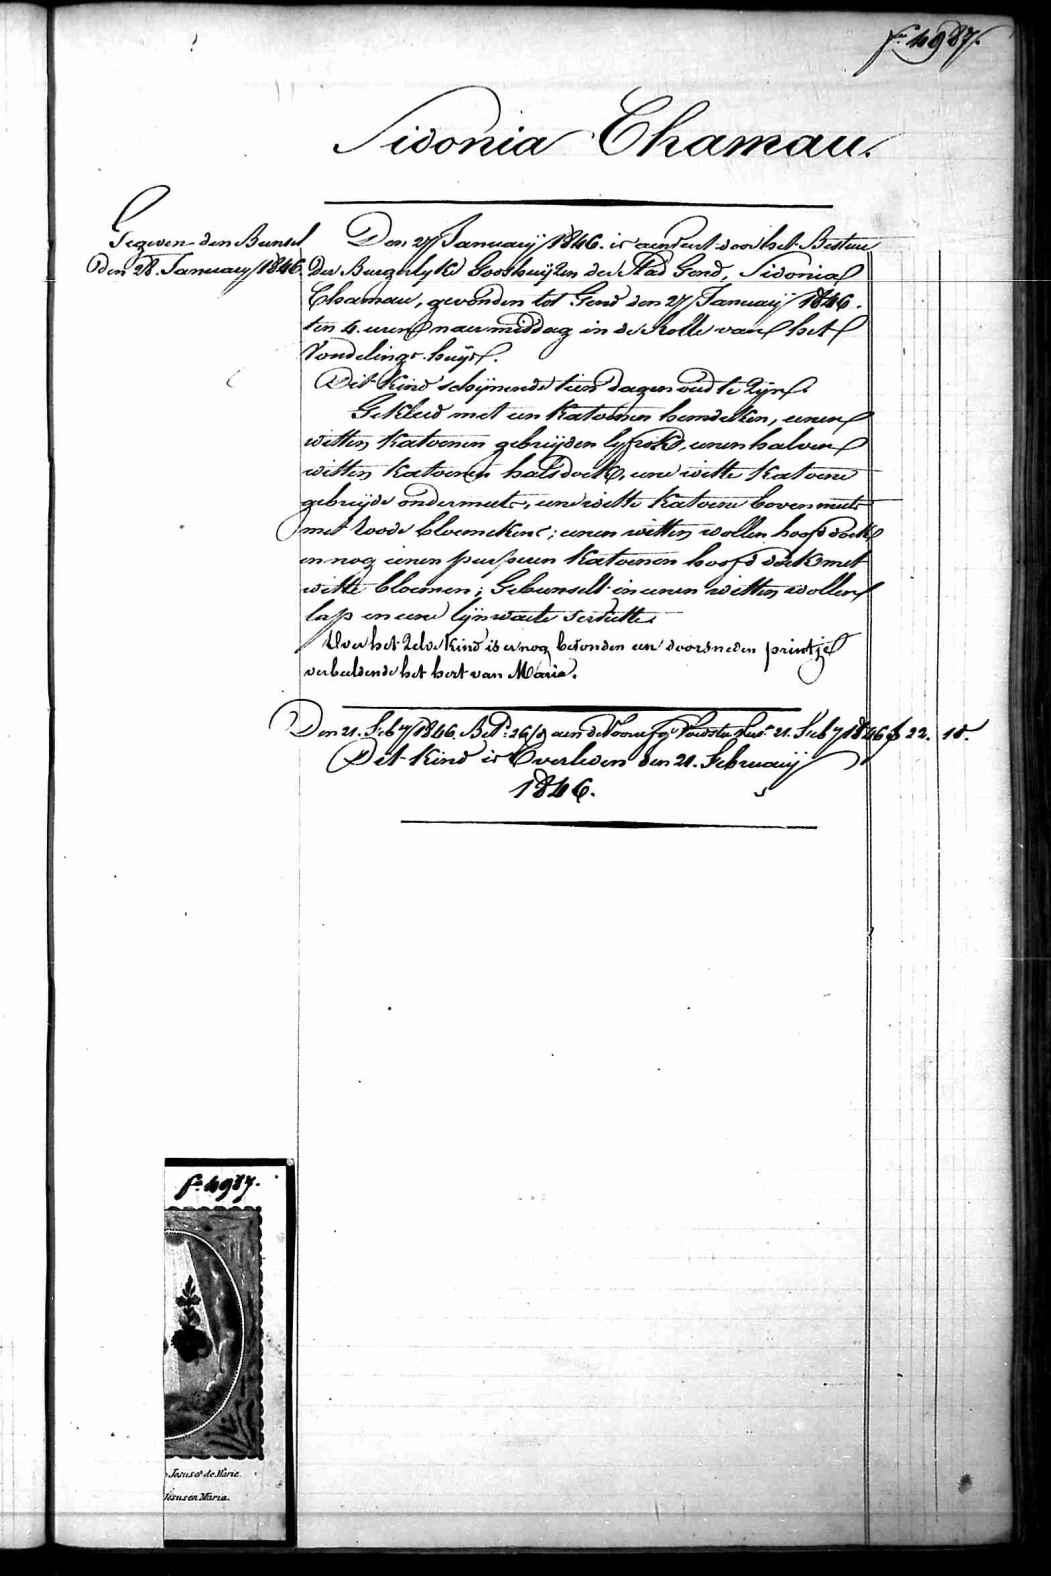 f.º 4987.
Sidonia Chamau.
Gegeven den Bunsel
Den 28. January 1846.
Den 27 Januarij 1846. is aenveert door het Bestuer
der Burgerlyke Godshuijzen der Stad Gend, Sidonia
Chamau, gevonden tot Gend den 27 Januarij 1846.
ten 4. uren naermiddag in de Rolle van het
Vondelings-huijs.
Dit Kind schijnende tien dagen oud te zijn.
Gekleed met een katoenen hemdeken, eenen
witten katoenen gebrijden lyfrok, eenen halven
witten katoenen halsdoek, eene witte katoene
gebrijde ondermuts, eene witte katoene bovenmuts
met roode bloemekens; eenen witten wollen hoofddoek
en nog eenen purperen katoenen hoofddoek met
witte bloemen; Gebunselt in eenen witten wollen
lap en eene lijnwaete serviette.
Over het zelve kind is er nog bevonden een doorsneden printje
verbeeldende het hert van Maria.
Den 21. Feb.y 1846. Bet.d 26/g aen de Voedster 21. Feb.y 1846 f 22. 18.
Dit Kind is Overleden den 21. Februarij
1846.
f.º 4987.
Jesus et de Marie
Jesus en Maria.